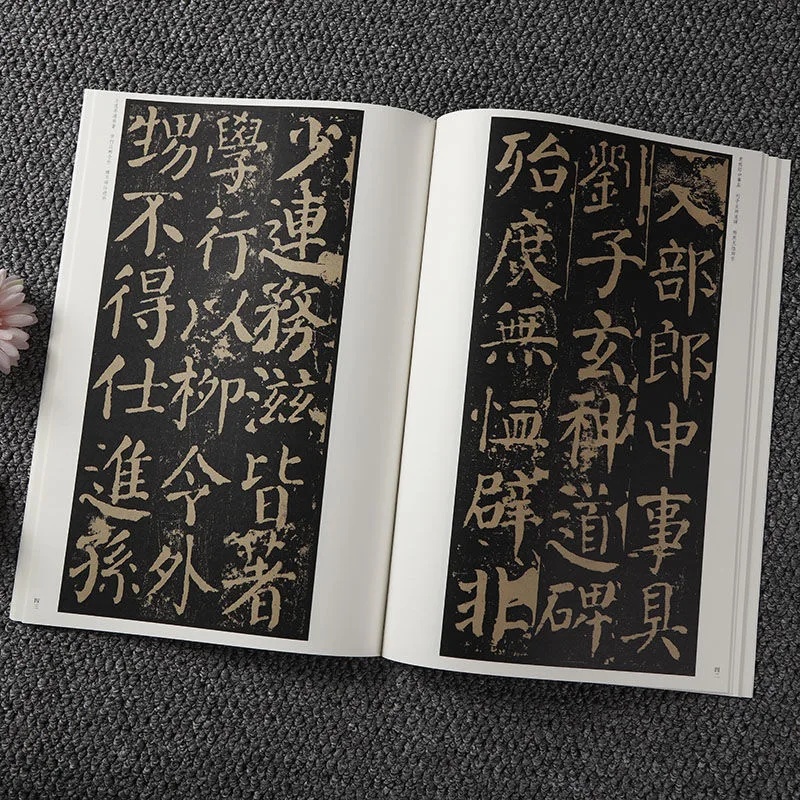 部郎申事具
劉子玄神道碑
殆庶無恤辟非
四二
少連務滋皆著
學行以柳令外
甥不得仕進孫
四三